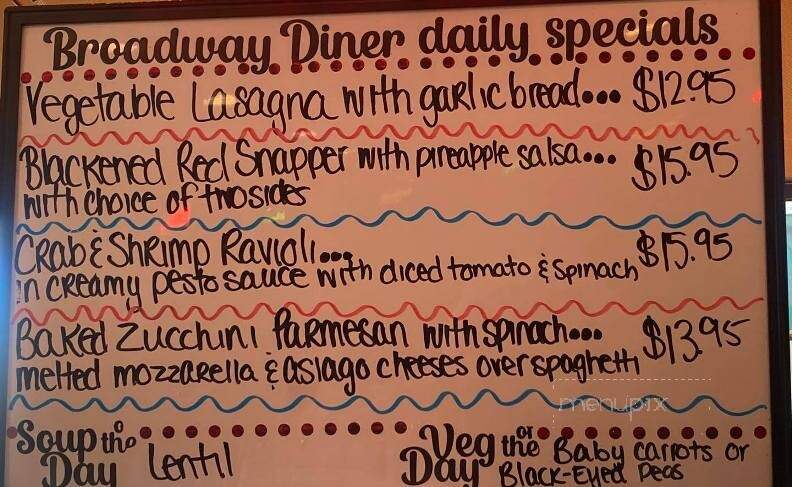 Broadway Diner daily specials
Vegetable Lasagna with garlic bread... $12.95
Blackened Red Snapper with pineapple salsa... $15.95
with choice of two sides
Crab & Shrimp Ravioli... $15.95
in creamy pesto sauce with diced tomato & spinach
Baked Zucchini Parmesan with spinach... $13.95
melted mozzarella & asiago cheeses over spaghetti
menupix
Soup of the Day Lentil
Veg of the Day Baby carrots or
Black-Eyed Peas